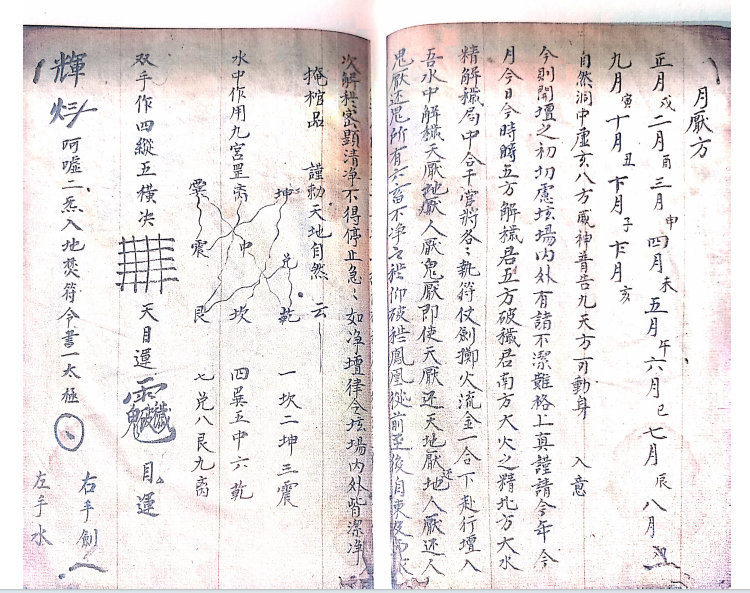 月厭方
正月戌二月酉三月申四月未五月午六月巳七月辰八月
九月寅十月丑十一月子十二月亥
自然洞中虛玄八方威神普告九天方可動身 入意
今則開壇之初切慮坛場内外有諸不潔難格上真謹請今年今
月今日今時時五方解穢君五方破穢君南方大火之精北方大水
精解穢局中合干官將各々執符仗劍擲火流金一合下赴行壇入
吾水中解穢天厭地厭人厭鬼厭即使天厭还天地厭还地人厭还人
鬼厭还鬼所有六畜不净之 仰破 鳳凰 前至後自東
次解 密顯清净不得停止急々如净壇律令坛場内外皆潔净
掩棺品 謹勅天地自然 云
坤 兌 乾 一坎二坤三震
水中作用九宮罡 离 中 坎 四巽五中六乾
巽 震 艮 七兌八艮九离
双手作四縱五橫决 天目運 目運
輝 呵嘘二炁入地焚符令書一太極 右手劍
左手水